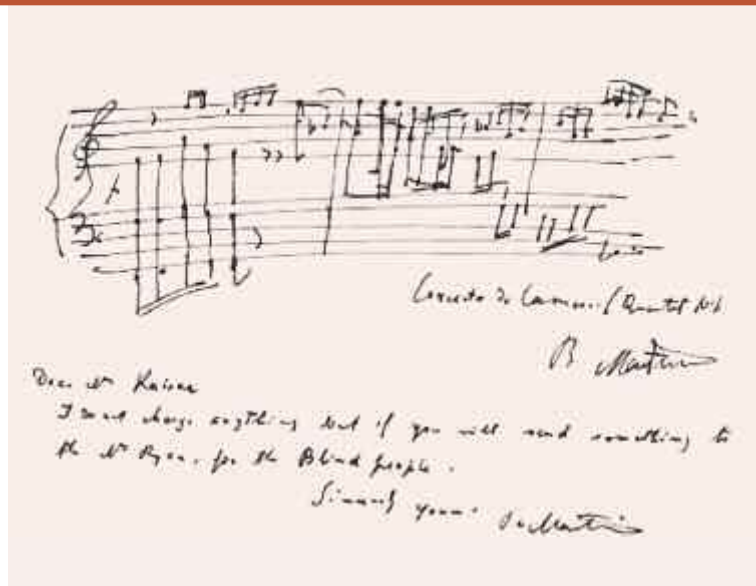 Concerto da Camera / Quartet No 1
B Martinu
Dear Mr Kaiser
I do not charge anything but if you will send something to
the Mr Ryan, for the Blind people.
Sincerely yours B Martinu